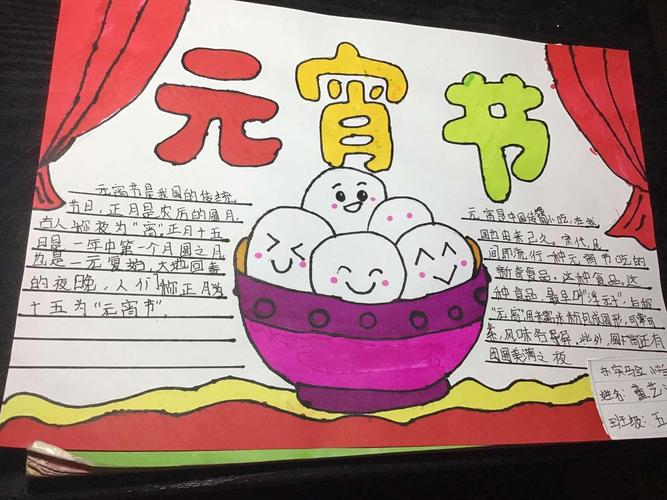 元宵节
元宵节是我国的传统
节日,正月是农历的
古人称夜为"宵"正月十五
日是一年中第一个月圆之
也是一元复始,大地回春
的夜晚,人们称正月
十五为"元宵节".
元宵是中国传统小吃,在我
国由来已久。宋代,民
间即流行一种元宵节吃的
新奇食品.这种食品.这
种食品,最早叫"浮元子",后称
"元宵"用 糯米粉 成圆形,可荤可
素,风味各异.此外, 还有
团圆美满之夜
姓名:
班级:五